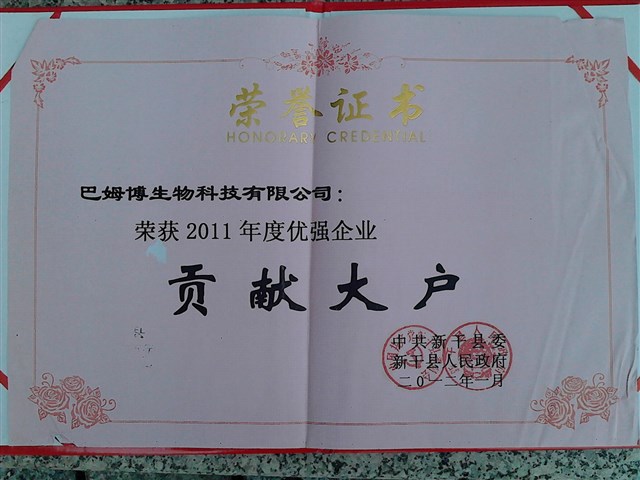 荣誉证书
HONORARY CREDENTIAL
巴姆博生物科技有限公司：
荣获2011年度优强企业
贡献大户
中共新干县委
新干县人民政府
二〇一二年一月